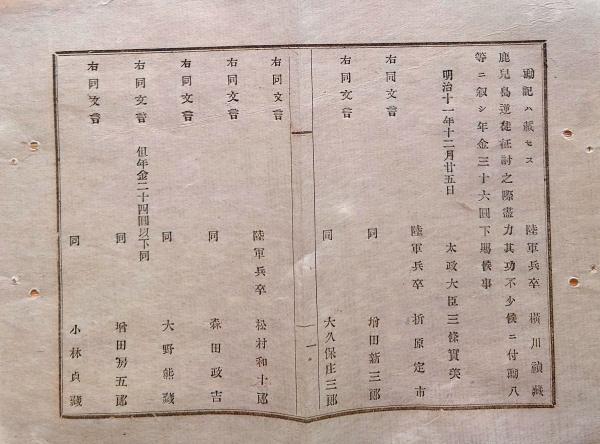 勳記ハ載セス 陸軍兵卒 横川禎藏
鹿兒島逆徒征討之際盡力其功不少候ニ付勳八
等ニ叙シ年金三十六圓下賜候事
明治十一年十二月廿五日 太政大臣三條實美
陸軍兵卒 折原定市
右同文言 同 増田新三郎
右同文言 同 大久保庄三郎
一
右同文言 陸軍兵卒 松村和十郎
右同文言 同 森田政吉
右同文言 同 大野熊藏
右同文言 但年金二十四圓以下同 同 増田房五郎
右同文言 同 小林貞藏